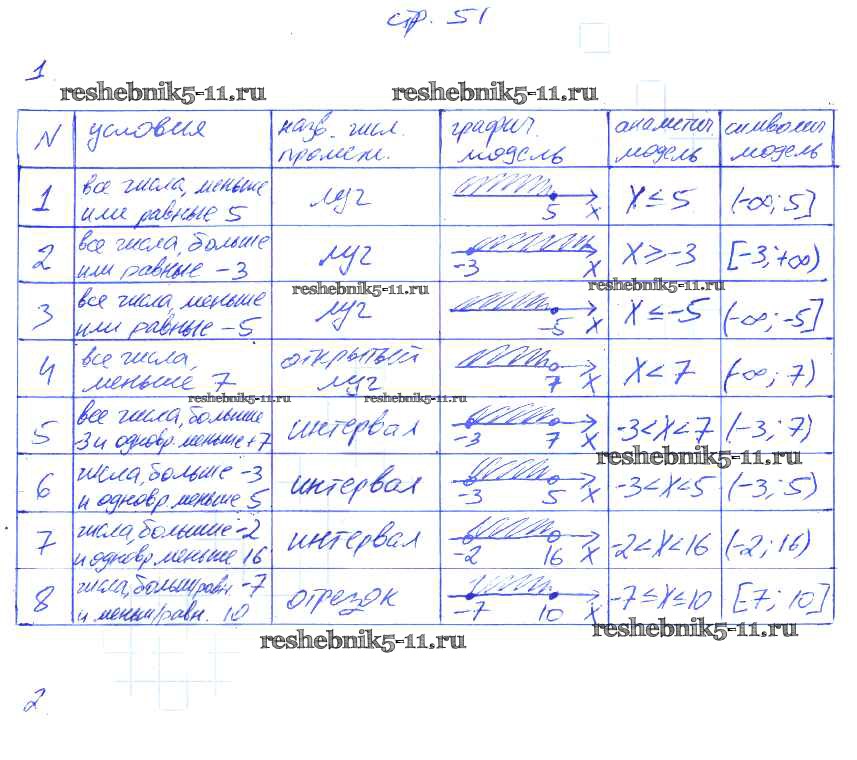 стр. 51
1
reshebnik5-11.ru reshebnik5-11.ru
N условия назв. числ. промеж. графич. модель аналитич модель символич модель
1 все числа, меньше или равные 5 луч 5 x x ≤ 5 (-∞; 5]
2 все числа, больше или равные -3 луч -3 x x ≥ -3 [-3; +∞)
reshebnik5-11.ru reshebnik5-11.ru
3 все числа, меньше или равные -5 луч -5 x x ≤ -5 (-∞; -5]
4 все числа, меньше 7 открытый луч 7 x x < 7 (-∞; 7)
reshebnik5-11.ru reshebnik5-11.ru
5 все числа, больше -3 и одновр. меньше +7 интервал -3 7 x -3 < x < 7 (-3; 7)
reshebnik5-11.ru
6 числа, больше -3 и одновр. меньше 5 интервал -3 5 x -3 < x < 5 (-3; 5)
7 числа, больше -2 и одновр. меньше 16 интервал -2 16 x -2 < x < 16 (-2; 16)
8 числа, больш/равн -7 и меньш/равн. 10 отрезок -7 10 x -7 ≤ x ≤ 10 [7; 10]
reshebnik5-11.ru reshebnik5-11.ru
2